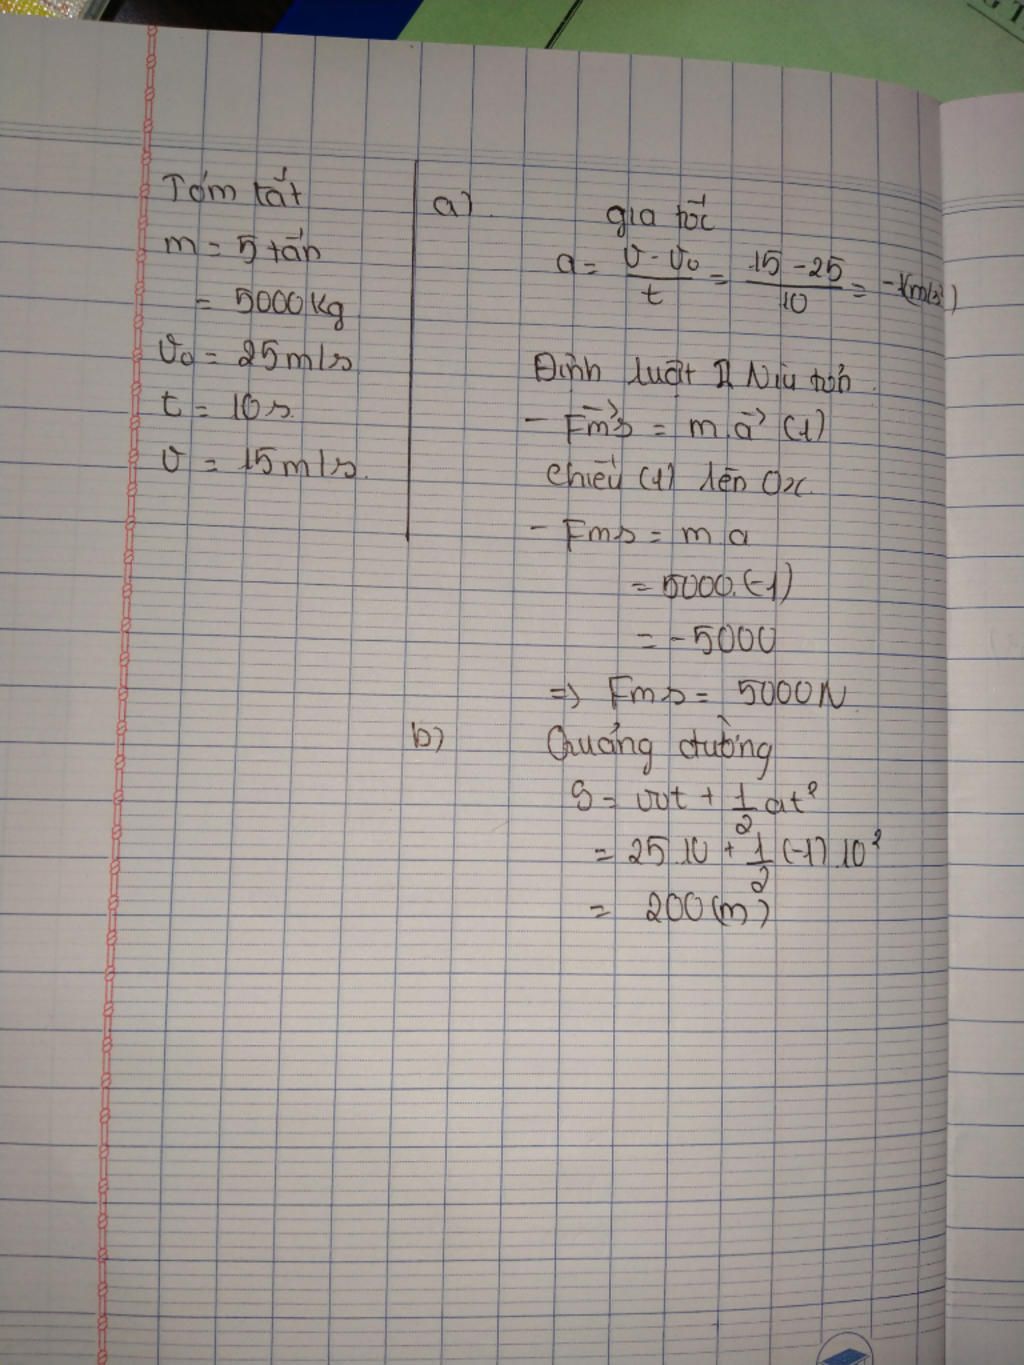 Tóm tắt
m = 5 tấn
= 5000 kg
v₀ = 25 m/s
t = 10 s.
v = 15 m/s.
a)
gia tốc
a = \frac{v - v₀}{t} = \frac{15 - 25}{10} = -1(m/s²)
Định luật II Niu tơn.
- \vec{Fms} = m \vec{a} (1)
chiếu (1) lên Ox.
- Fms = m a
= 5000.(-1)
= -5000
=> Fms = 5000N
b)
Quảng đường
S = v₀t + \frac{1}{2} at²
= 25.10 + \frac{1}{2} (-1).10²
= 200 (m)